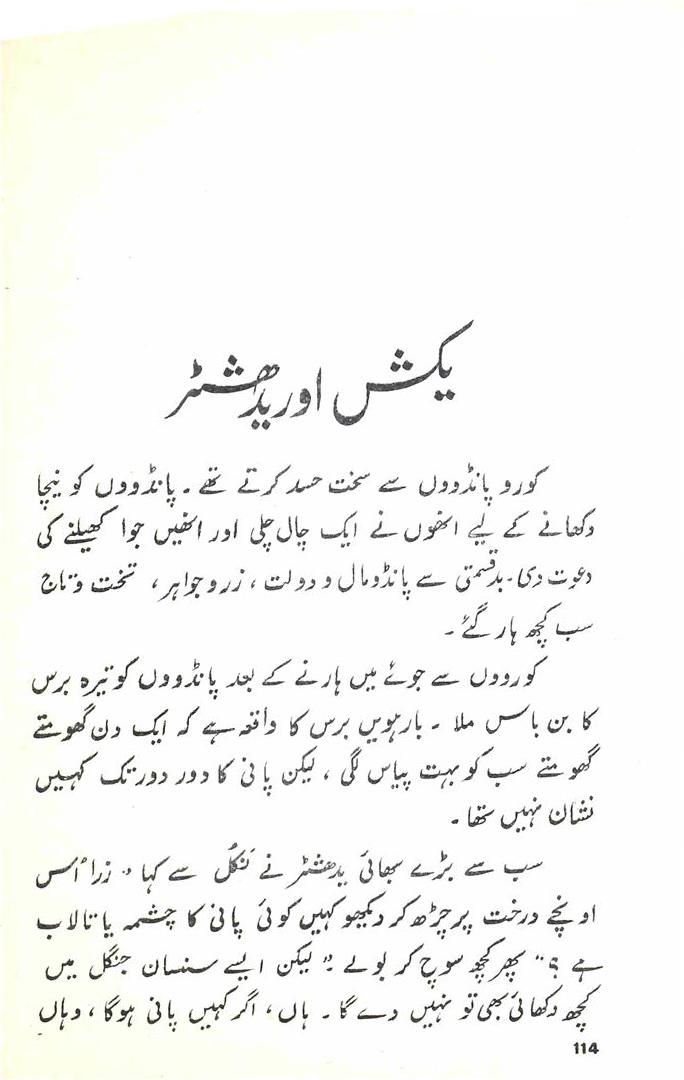 یکش اور یدھشٹر
کورو پانڈووں سے سخت حسد کرتے تھے۔ پانڈووں کو نیچا
دکھانے کے لیے انھوں نے ایک چال چلی اور انھیں جوا کھیلنے کی
دعوت دی۔ بدقسمتی سے پانڈو مال و دولت، زر و جواہر، تخت و تاج
سب کچھ ہار گئے۔
کورووں سے جوئے میں ہارنے کے بعد پانڈووں کو تیرہ برس
کا بن باس ملا۔ بارھویں برس کا واقعہ ہے کہ ایک دن گھومتے
گھومتے سب کو بہت پیاس لگی، لیکن پانی کا دور دور تک کہیں
نشان نہیں تھا۔
سب سے بڑے بھائی یدھشٹر نے نکُل سے کہا "زرا اُس
اونچے درخت پر چڑھ کر دیکھو کہیں کوئی پانی کا چشمہ یا تالاب
ہے؟" پھر کچھ سوچ کر بولے "لیکن ایسے سنسان جنگل میں
کچھ دکھائی بھی تو نہیں دے گا۔ ہاں، اگر کہیں پانی ہوگا، وہاں
114